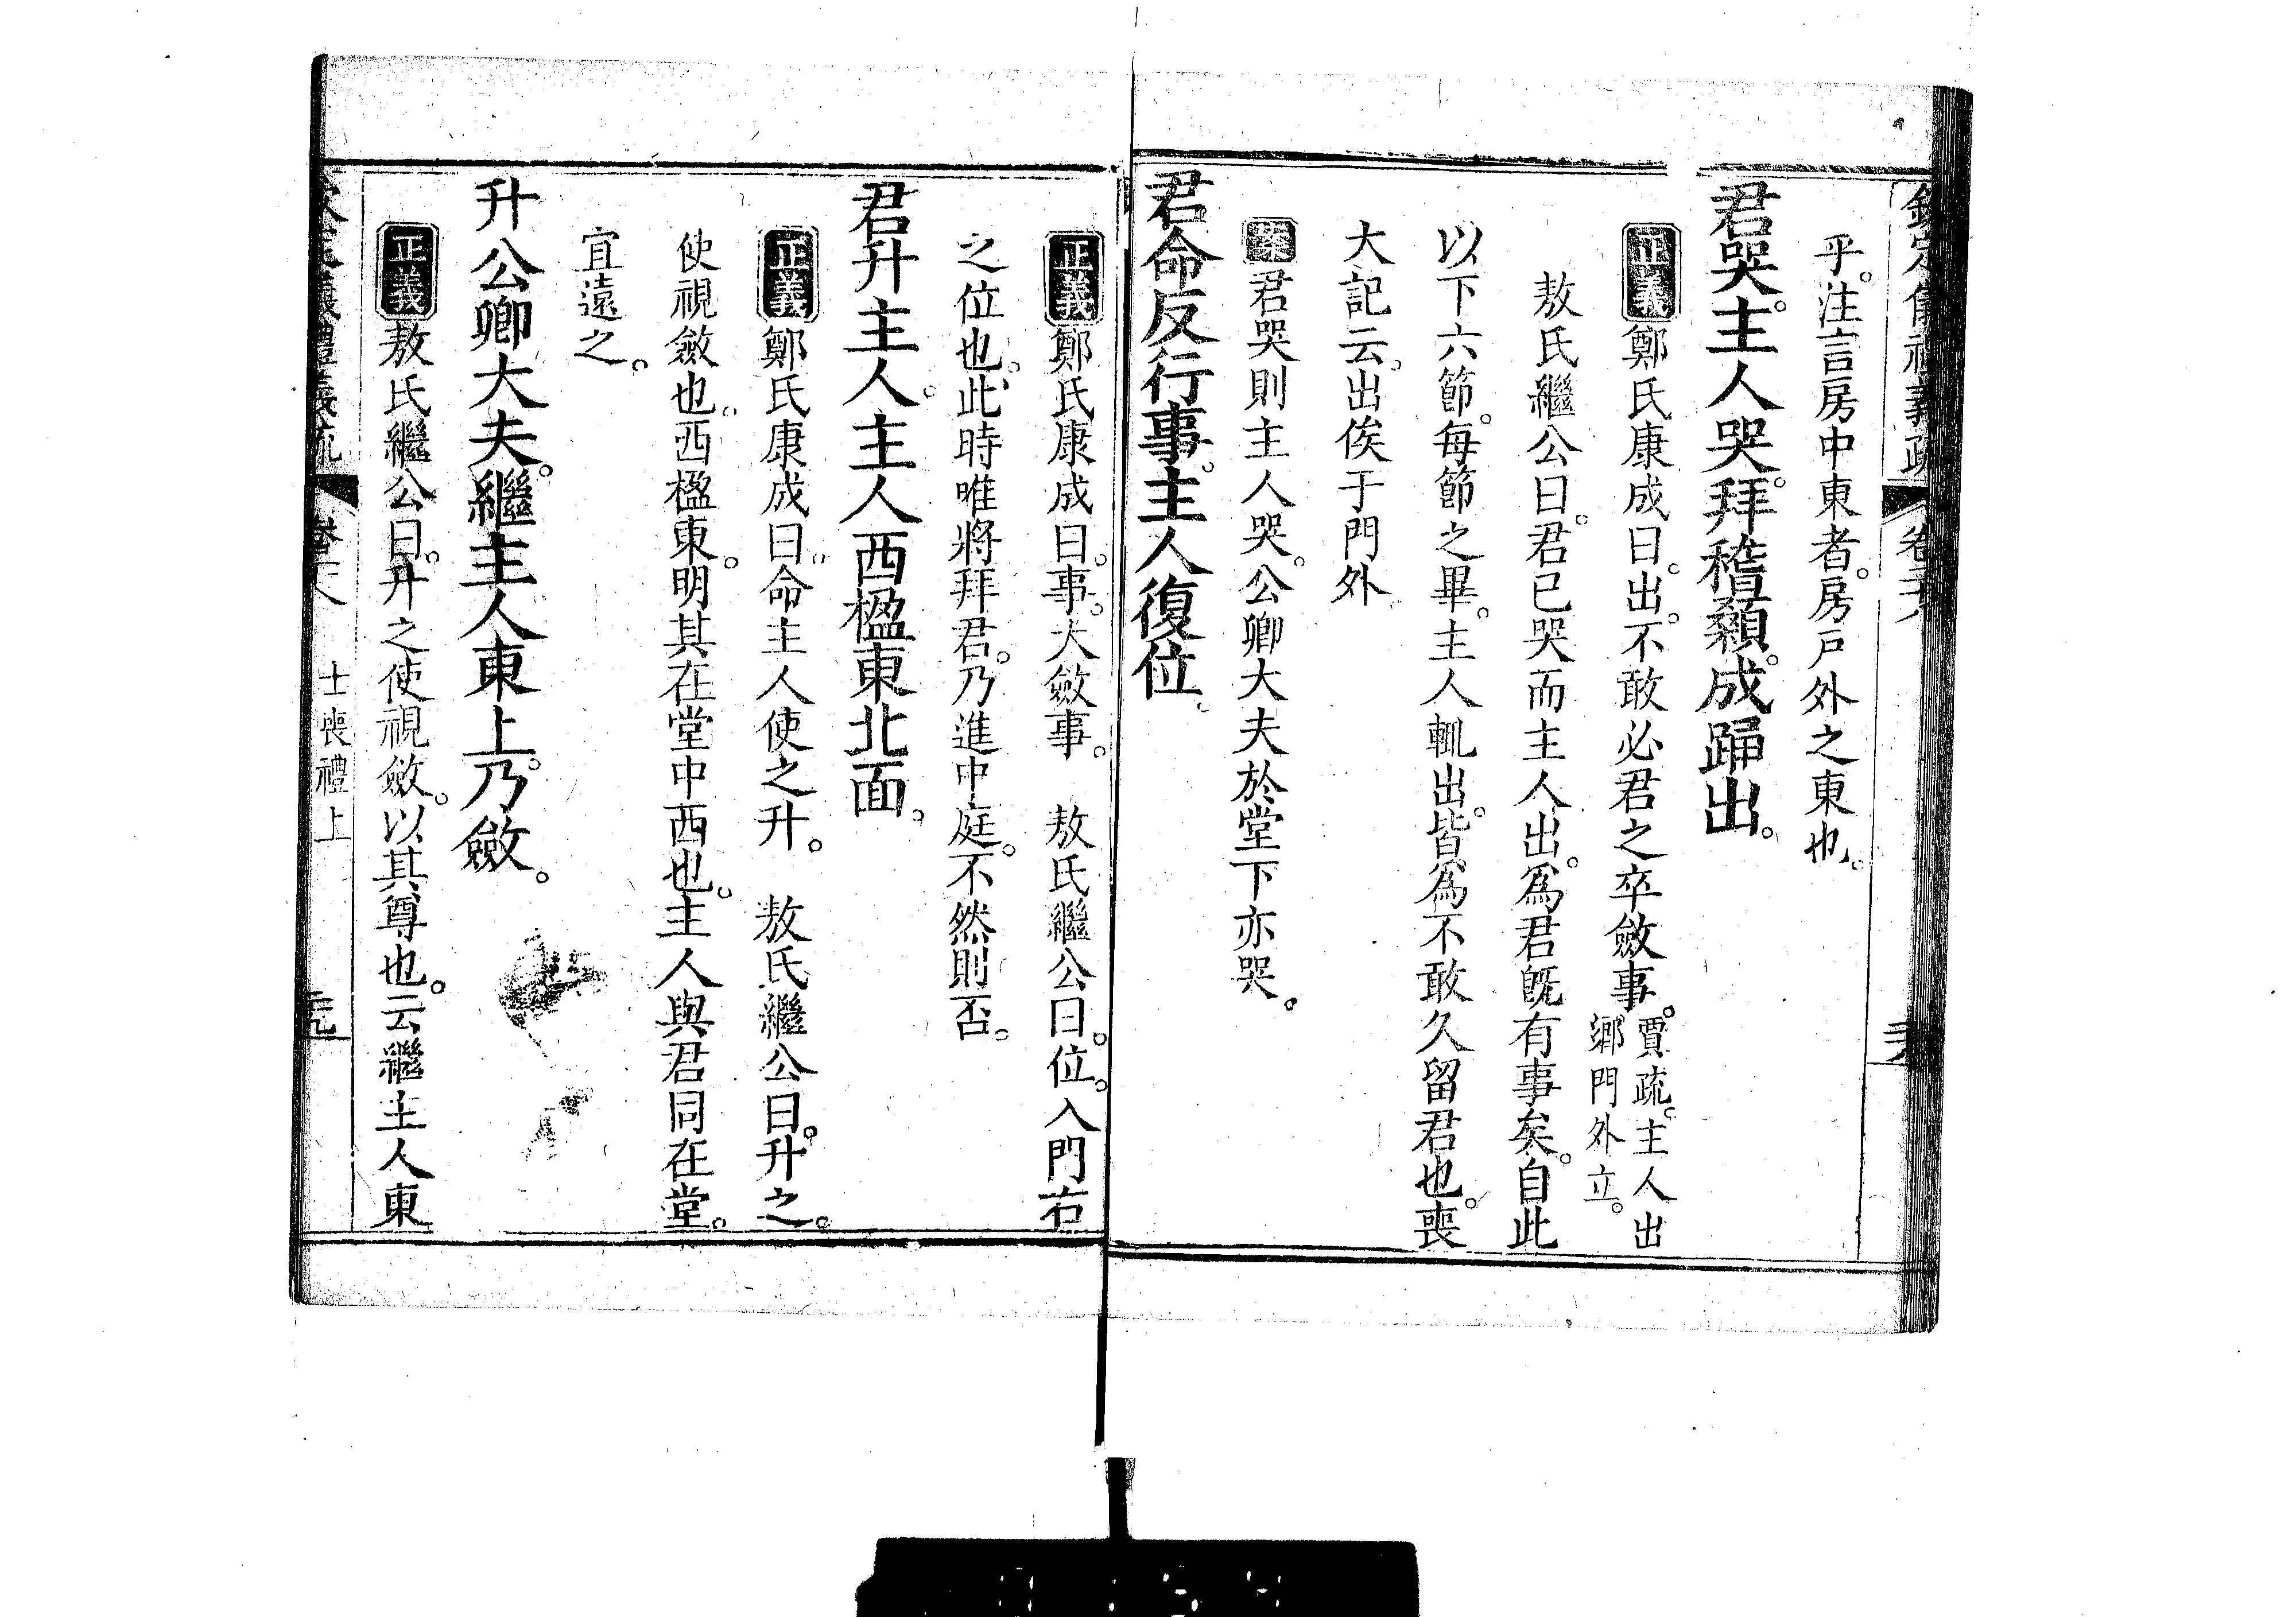 乎。注言房中東者。房戶外之東也。
君哭。主人哭。拜稽顙。成踊出。
正義鄭氏康成曰。出。不敢必君之卒斂事。賈疏。主人出鄉門外立。
敖氏繼公曰。君已哭而主人出。為君旣有事矣。自此
以下六節。每節之畢。主人輒出。皆為不敢久留君也。喪
大記云。出俟于門外
案君哭則主人哭。公卿大夫於堂下亦哭。
君命反行事。主人復位。
正義鄭氏康成曰。事。大斂事。 敖氏繼公曰。位。入門右
之位也。此時唯將拜君。乃進中庭。不然則否。
君升主人。主人西楹東北面。
正義鄭氏康成曰。命主人使之升。 敖氏繼公曰。升之。
使視斂也。西楹東。明其在堂中西也。主人與君同在堂。
宜遠之。
升公卿大夫。繼主人東上。乃斂。
正義敖氏繼公曰。升之使視斂。以其尊也。云繼主人東
士喪禮上